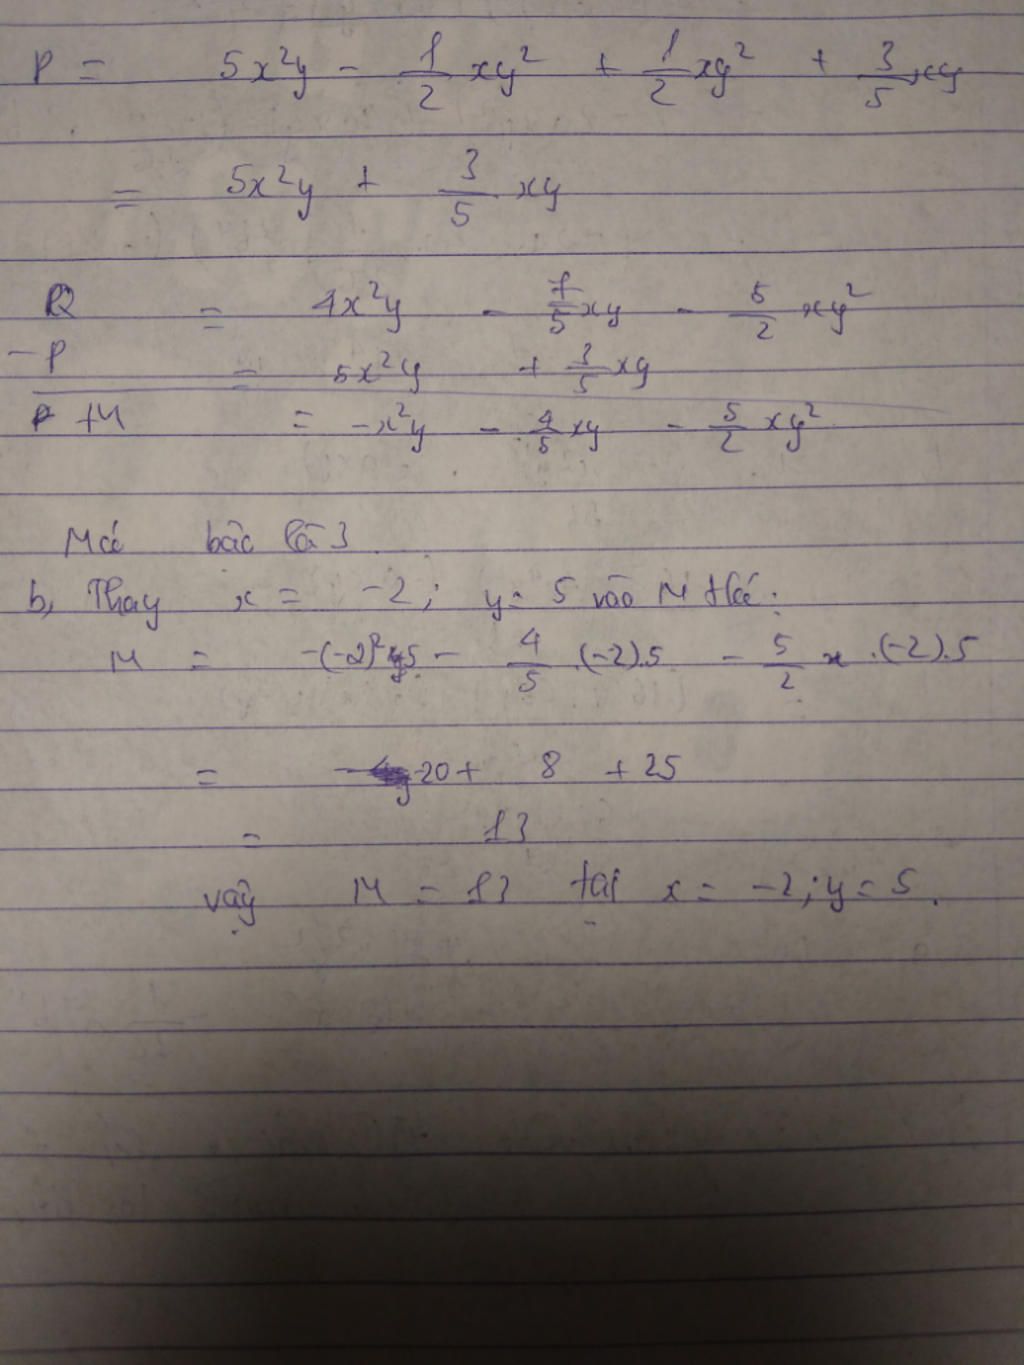 P = 5x²y - 1/2 xy² + 1/2 xy² + 3/5 xy
= 5x²y + 3/5 xy
Q = 4x²y - 7/5 xy - 5/2 xy²
- P = 5x²y + 3/5 xy
+M = -x²y - 4/5 xy - 5/2 xy²
M có bâc là 3
b, Thay x = -2; y = 5 vào M
M = -(-2)² 5 - 4/5 .(-2).5 - 5/2 .(-2).5
= -20 + 8 + 25
= 13
vậy M = 13 tại x = -2; y = 5.